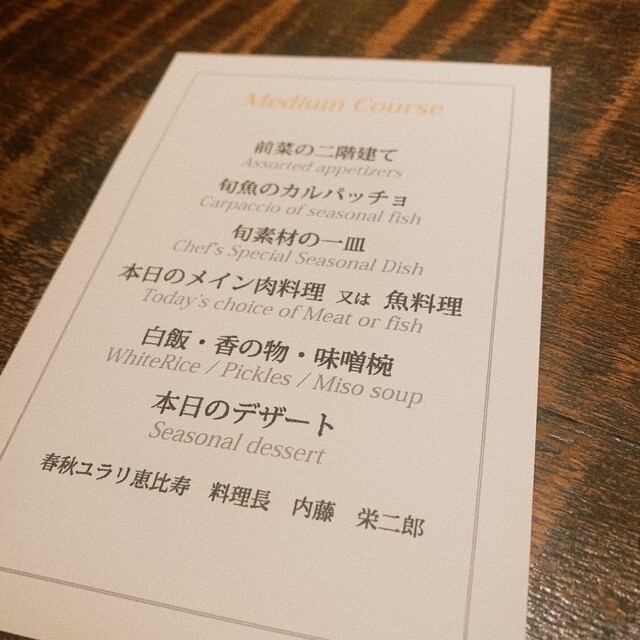 Medium Course
前菜の二階建て
Assorted appetizers
旬魚のカルパッチョ
Carpaccio of seasonal fish
旬素材の一皿
Chef's Special Seasonal Dish
本日のメイン肉料理 又は 魚料理
Today's choice of Meat or fish
白飯・香の物・味噌椀
WhiteRice / Pickles / Miso soup
本日のデザート
Seasonal dessert
春秋ユラリ恵比寿 料理長 内藤 栄二郎